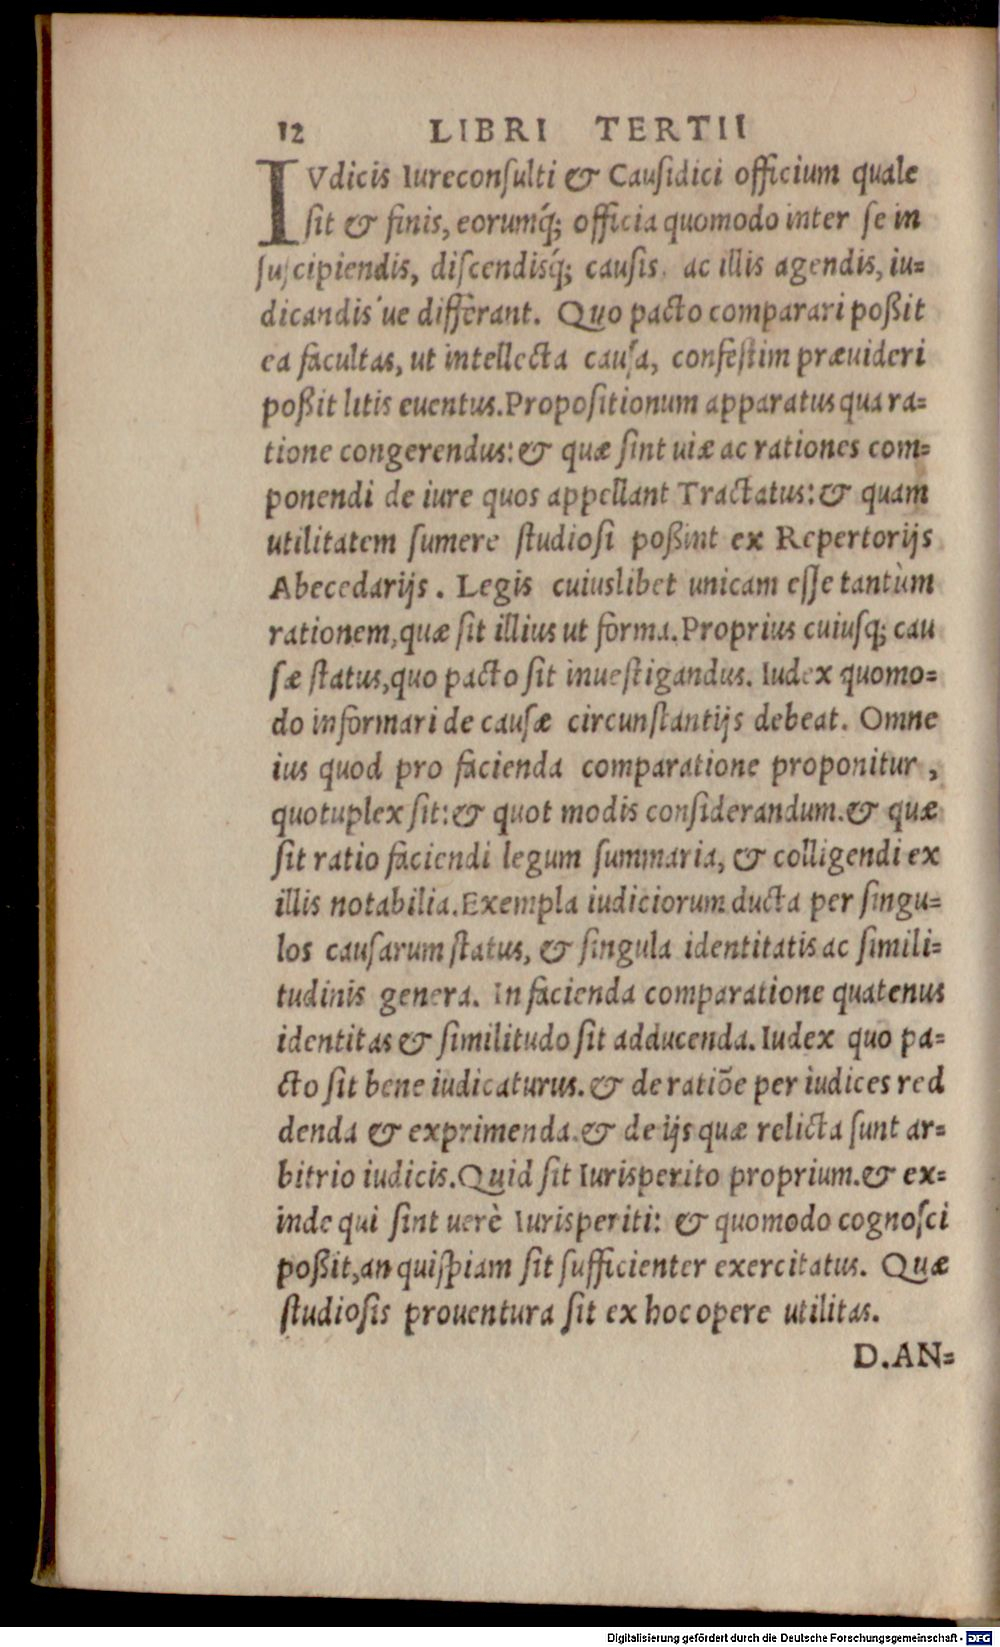 12 LIBRI TERTII
IVdicis Iureconſulti & Cauſidici officium quale
ſit & finis, eorumq́; officia quomodo inter ſe in
ſuſcipiendis, diſcendisq́; cauſis, ac illis agendis, iu=
dicandis'ue differant. Quo pacto comparari poßit
ea facultas, ut intellecta cauſa, confeſtim præuideri
poßit litis euentus. Propoſitionum apparatus qua ra=
tione congerendus: & quæ ſint uiæ ac rationes com=
ponendi de iure quos appellant Tractatus: & quam
utilitatem ſumere ſtudioſi poßint ex Repertorijs
Abecedarijs. Legis cuiuslibet unicam eſſe tantùm
rationem, quæ ſit illius ut forma. Proprius cuiuſq; cau
ſæ ſtatus, quo pacto ſit inueſtigandus. Iudex quomo=
do informari de cauſæ circunſtantijs debeat. Omne
ius quod pro facienda comparatione proponitur,
quotuplex ſit: & quot modis conſiderandum. & quæ
ſit ratio faciendi legum ſummaria, & colligendi ex
illis notabilia. Exempla iudiciorum ducta per ſingu=
los cauſarum ſtatus, & ſingula identitatis ac ſimili=
tudinis genera. In facienda comparatione quatenus
identitas & ſimilitudo ſit adducenda. Iudex quo pa=
cto ſit bene iudicaturus. & de ratiõe per iudices red
denda & exprimenda. & de ijs quæ relicta ſunt ar=
bitrio iudicis. Quid ſit Iurisperito proprium. & ex=
inde qui ſint uerè Iurisperiti: & quomodo cognoſci
poßit, an quiſpiam ſit ſufficienter exercitatus. Quæ
ſtudioſis prouentura ſit ex hoc opere utilitas.
D. AN=
Digitalisierung gefördert durch die Deutsche Forschungsgemeinschaft - DFG